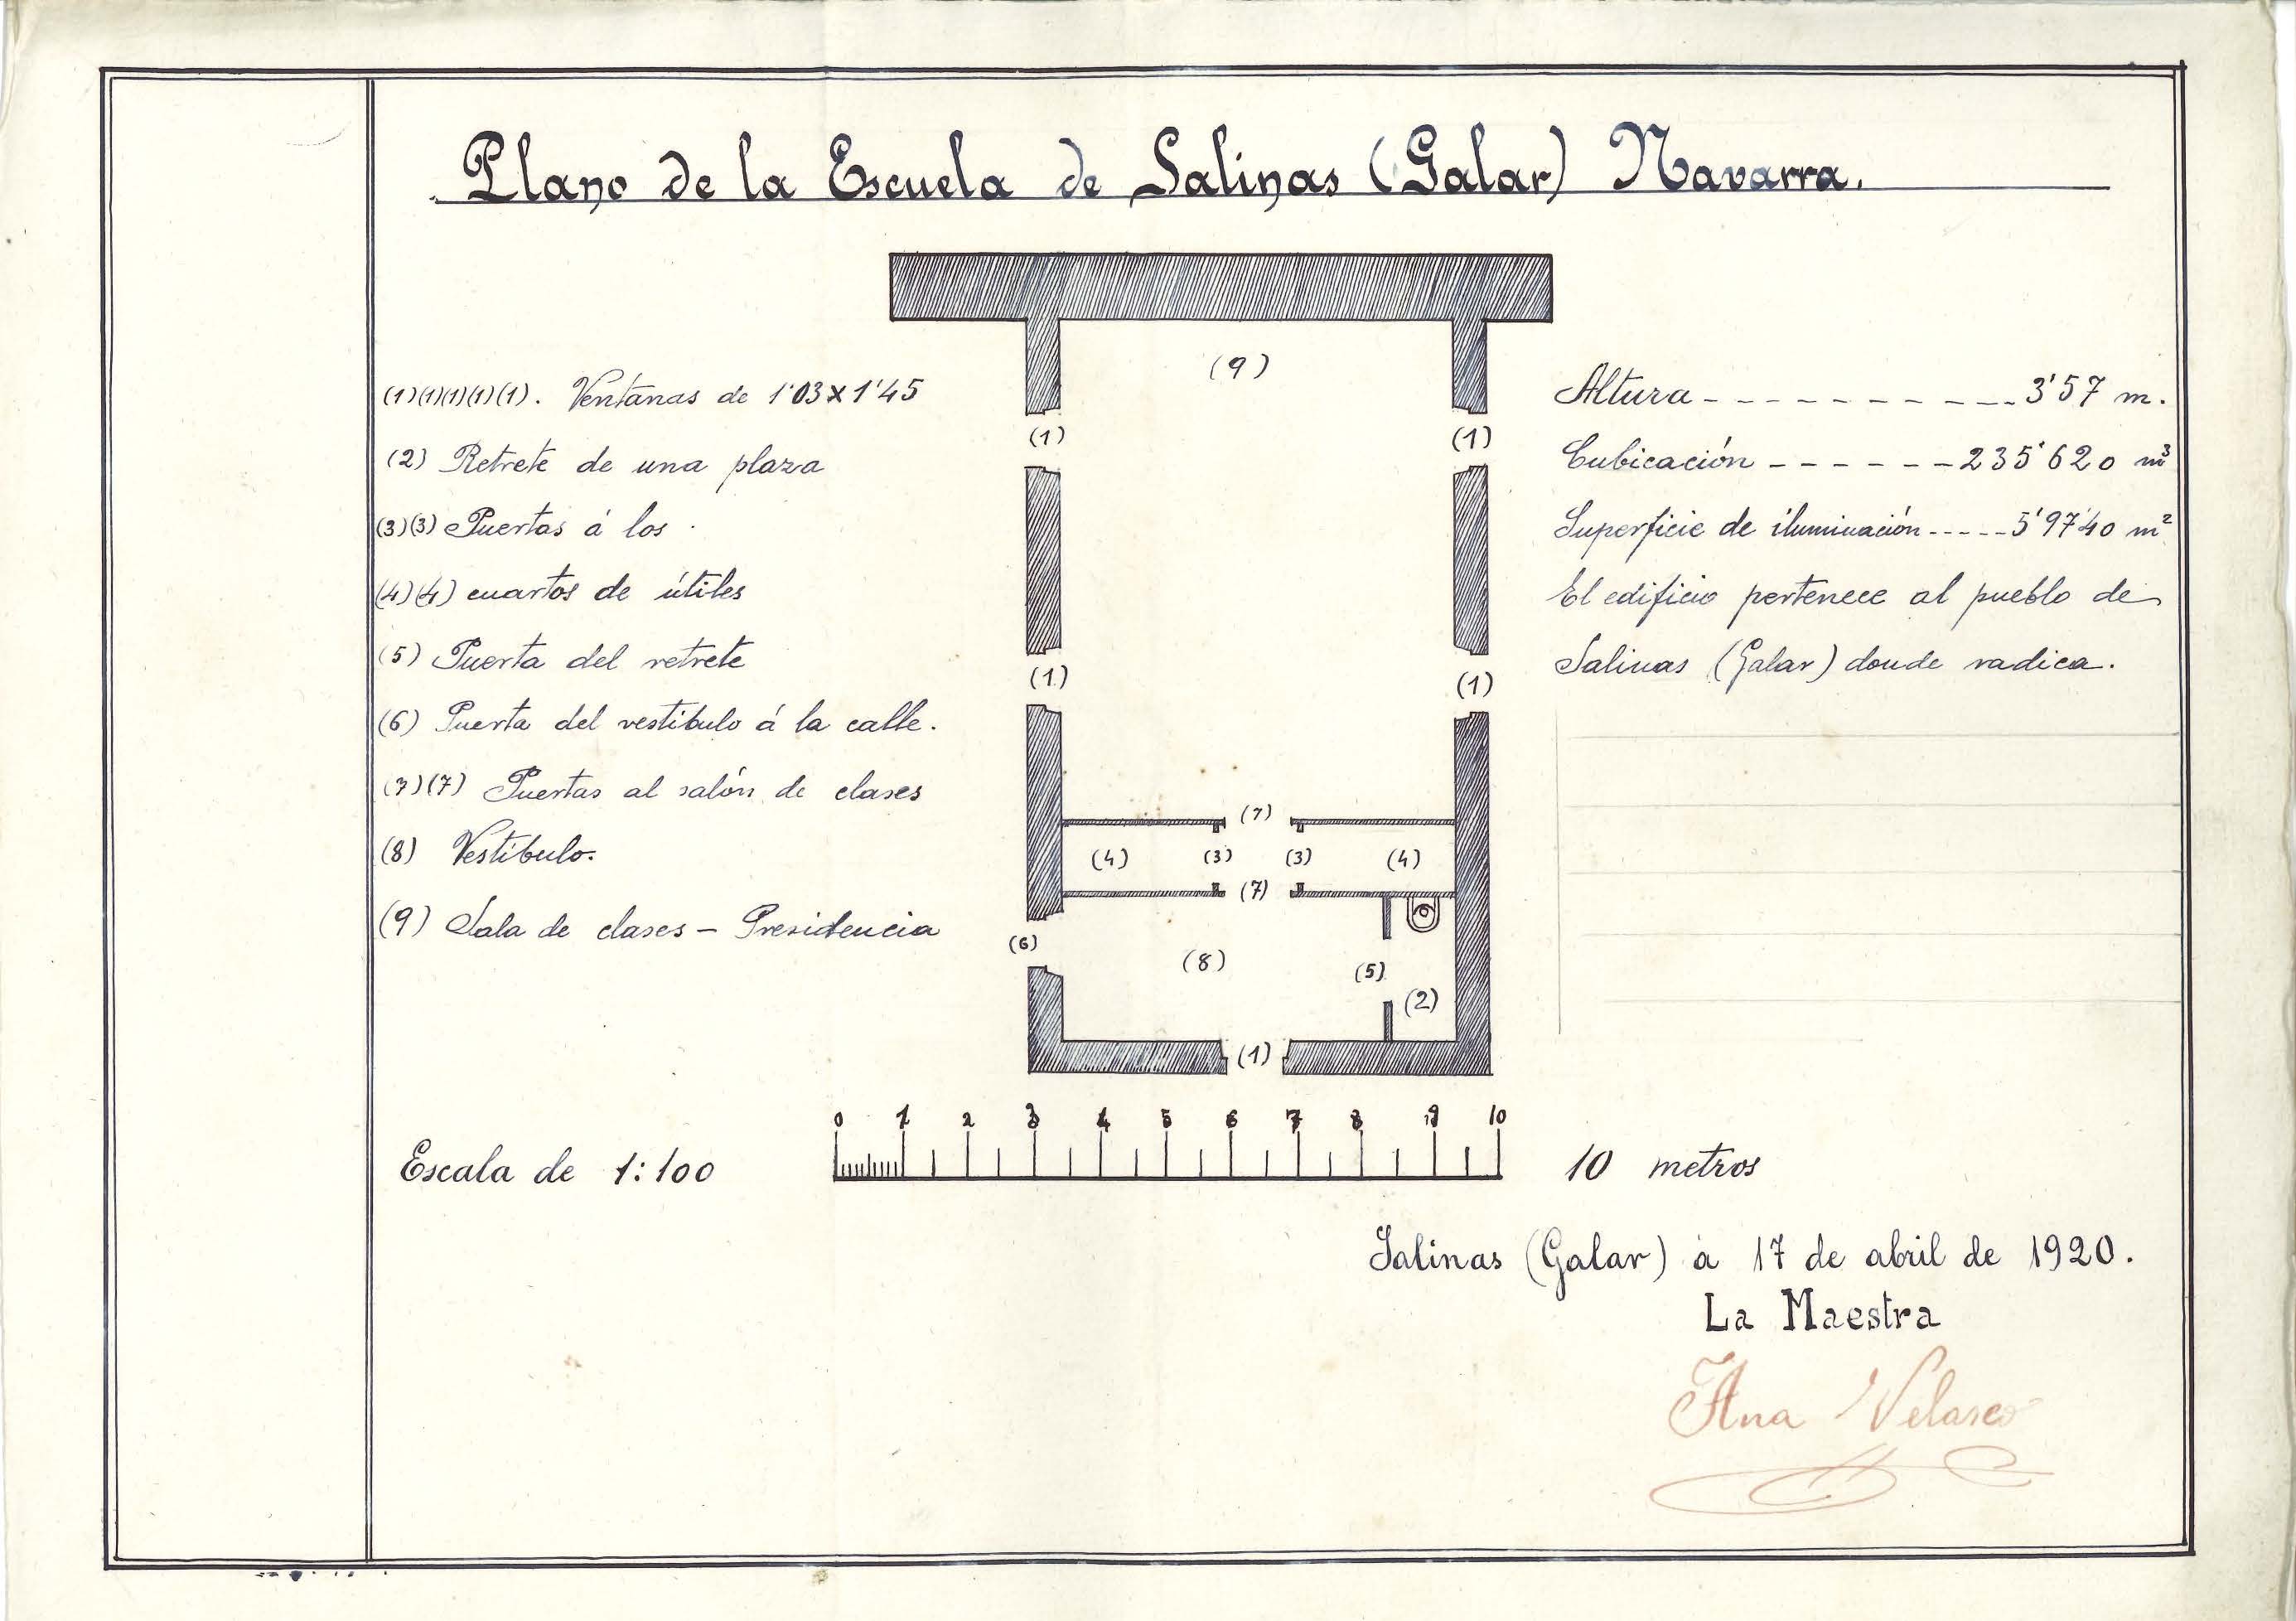 Plano de la Escuela de Salinas (Galar) Navarra.
(1)(1)(1)(1)(1). Ventanas de 1'03 x 1'45
(2) Retrete de una plaza
(3)(3) Puertas á los
(4)(4) cuartos de útiles
(5) Puerta del retrete
(6) Puerta del vestibulo á la calle.
(7)(7) Puertas al salón de clases
(8) Vestíbulo.
(9) Sala de clases - Presidencia
(9)
(1) (1)
(1) (1)
(7)
(4) (3) (3) (4)
(7)
(6) (8) (5)
(2)
(1)
Altura - - - - - - - - - - - 3'57 m.
Cubicación - - - - - - 235'620 m³
Superficie de iluminación - - - - - 5'97'40 m²
El edificio pertenece al pueblo de
Salinas (Galar) donde radica.
0 1 2 3 4 5 6 7 8 9 10
Escala de 1:100
10 metros
Salinas (Galar) á 17 de abril de 1920.
La Maestra
Ana Velasco